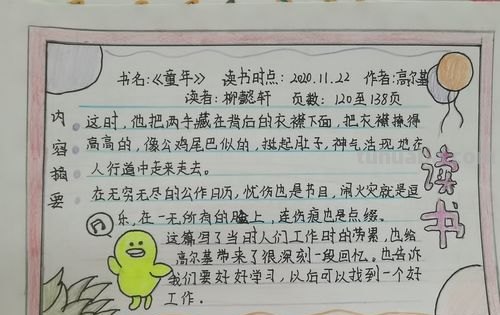 书名:《童年》 读书时点: 2020.11.22 作者:高尔基
读者: 柳懿轩 页数: 120至138页
内容摘要
这时,他把两手藏在背后的衣襟下面,把衣襟撩得
高高的,像公鸡尾巴似的,挺起肚子,神气活现地在
人行道中走来走去。
在无穷无尽的工作日历,忧伤也是节日,闹火灾就是逗
乐,在一无所有的脸上,连伤痕也是点缀。
这篇写了当时人们工作时的劳累,也给
高尔基带来了很深刻一段回忆。也告诉
我们要好好学习,以后可以找到一个好
工作.
读书